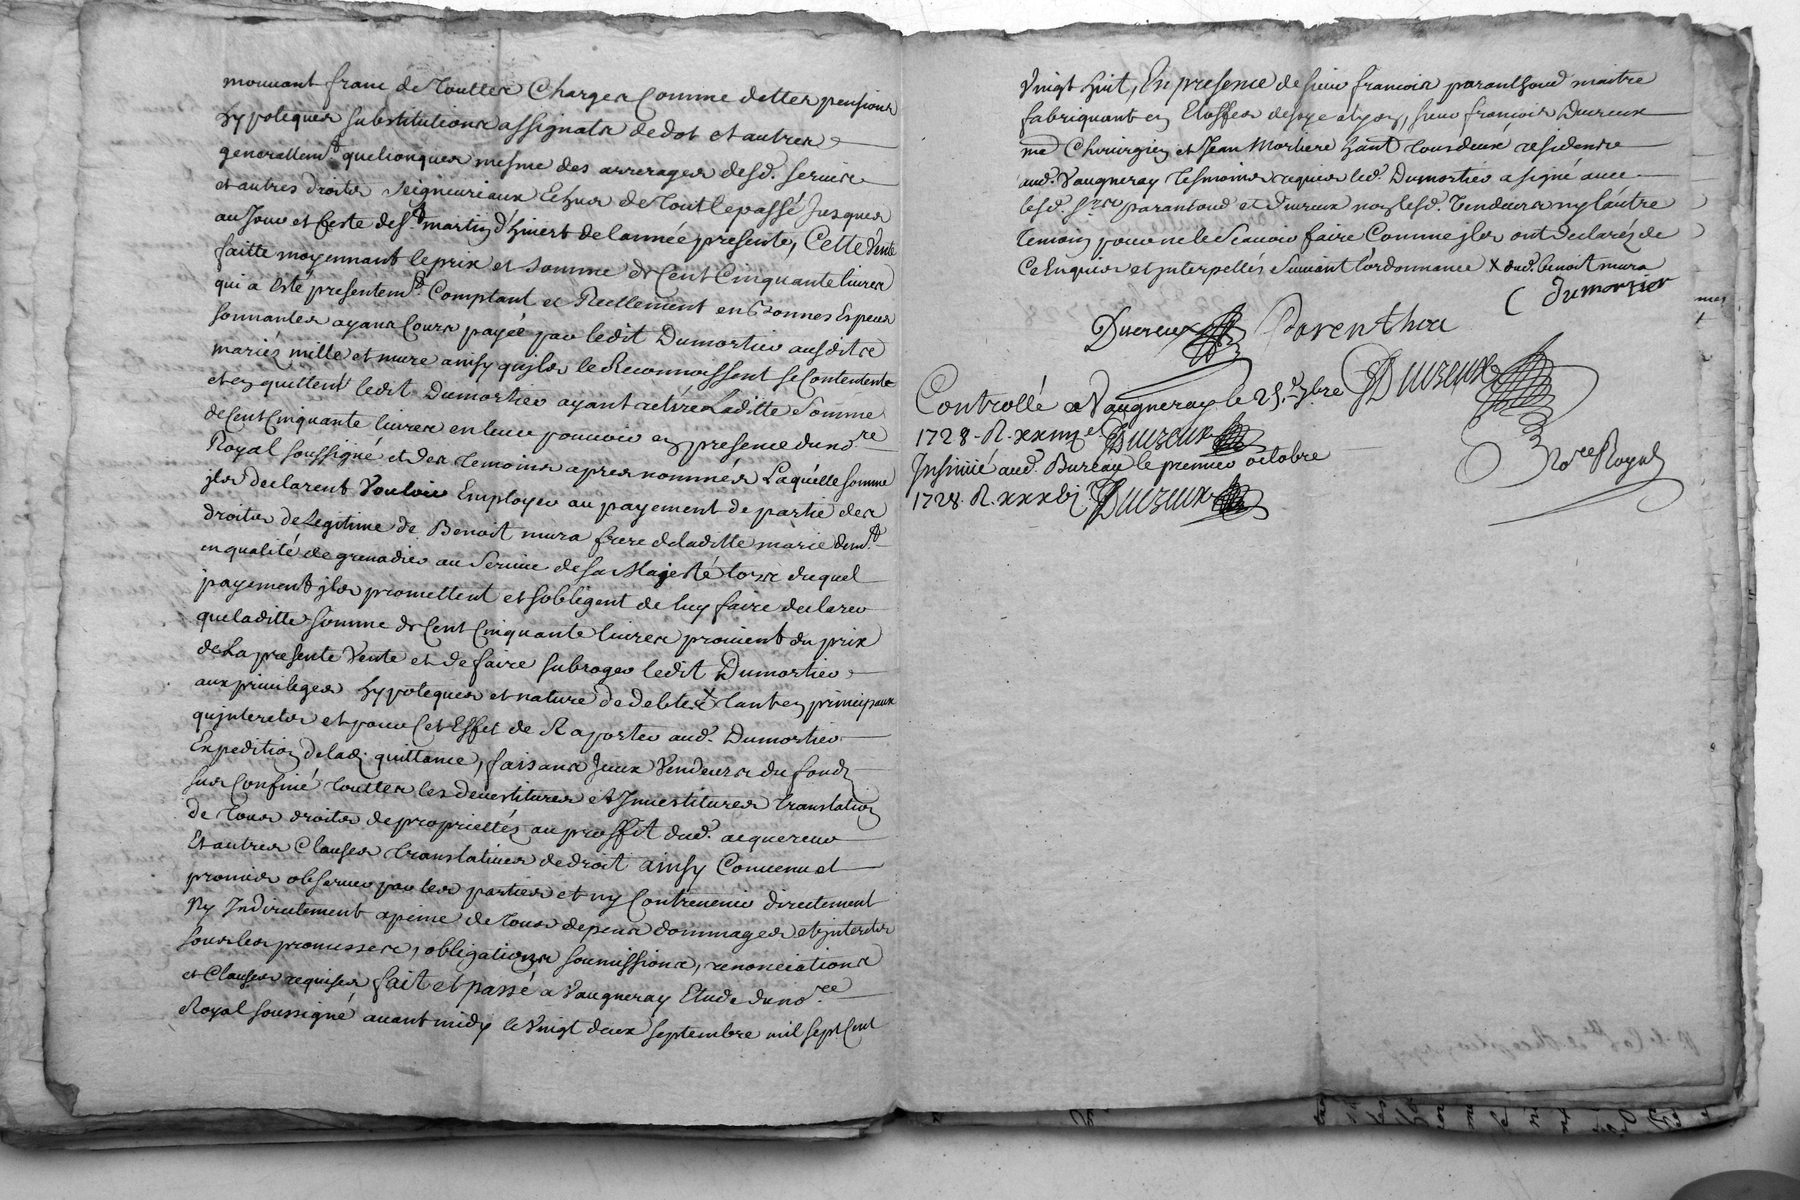 mouvant franc de Touttes Charges Comme dettes pensions
hypoteques substitutions assignats de dot et autres
generallemt quelconques mesme des arrerages desd. servis
et autres droits seigneuriaux Echus de tout le passé Jusques
au Jour et feste de st martin d'hivert de l'année presente, Cette Vente
faitte moyennant le prix et somme de Cent Cinquante livres
qui a Esté presentemt Comptant et Reellement en bonnes Especes
sonnantes ayans Cours payée par ledit Dumortier ausdits
mariés mille et mure ainsy qu'jls le Reconnoissent se Contentent
et en quittent ledit Dumortier ayant retiré Laditte Somme
de Cent Cinquante livres en leur pouvoir en presence du nore
Royal soussigné et des temoins apres nommés Laquelle somme
jls declarent Vouloir Employer au payement de partie des
droits de Legitime de Benoit mura frere de laditte marie
en qualité de grenadier au Service de sa Majesté lors duquel
payement jls promettent et s'obligent de luy faire declarer
que laditte somme de Cent Cinquante livres provient du prix
de La presente Vente et de faire subroger ledit Dumortier
aux privileges hypoteques et nature de debtes X tant en principaux
qu'jnterets et pour Cet Effet de Raporter aud. Dumortier
Expedition de lad. quittance, faisans Jceux Vendeurs du fond
sus Confiné touttes les devestitures et Jnvestitures translation
de tous droits de proprietés au proffit dud. acquereur
Et autres Clauses translatives de droit ainsy Convenu et
promis observer par les parties et ny Contrevenir directement
Ny Indirectement a peine de tous depens dommages et jnterets
sous les promesses, obligations soumissions, renonciations
et Clauses requises fait et passé a Vaugneray Etude du nore
Royal soussigné avant midy le Vingt deux septembre mil sept Cent
Vingt huit, En presence de sieur francois maitre
fabriquant en Etoffes de soye a lyon, sieur francois Ducreux
me Chirurgien et Jean Morliere hant tous deux residents
aud. Vaugneray tesmoins requis led. Dumortier a signé avec
lesd. srs et Ducreux non lesd. Vendeurs ny l'autre
temoin pour ne le Scavoir faire Comme jls ont declarés de
Ce Enquis et jnterpellés Suivant l'ordonnance X dud. benoit mura
Dumortier
Ducreux
Controllé a Vaugneray le 25. 7bre Ducreux
1728 - R. Ducreux
Insinué aud. Bureau le premier octobre
nore Royal
1728 R. Ducreux